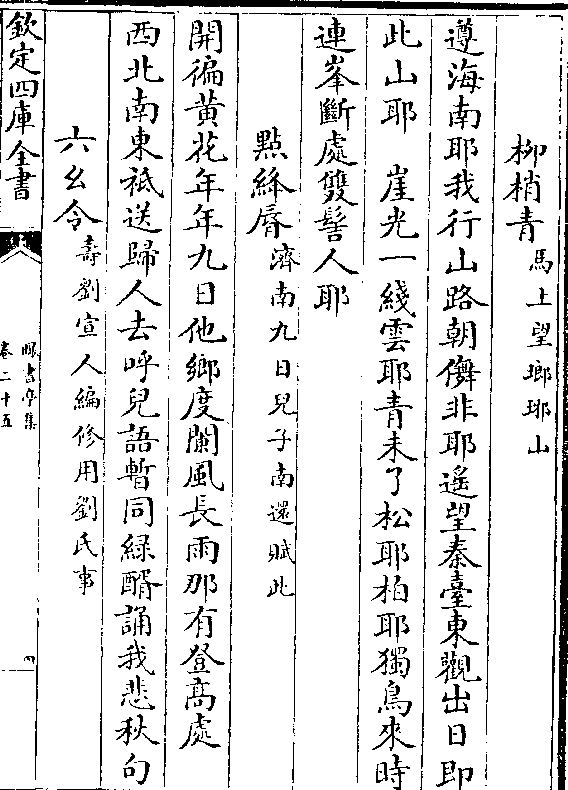 柳梢青馬上望瑯琊山
遵海南耶我行山路朝儛非耶遙望秦臺東觀出日即
此山耶　崖光一綫雲耶青未了松耶柏耶獨鳥來時
連峯斷處雙髻人耶
點絳脣濟南九日兒子南還賦此
開徧黄花年年九日他鄉度闌風長雨那有登髙處
西北南東祗送歸人去呼兒語暫同綠醑誦我悲秋句
六幺令壽劉宣人編修用劉氏事
欽定四庫全書
曝書亭集
卷二十五
四